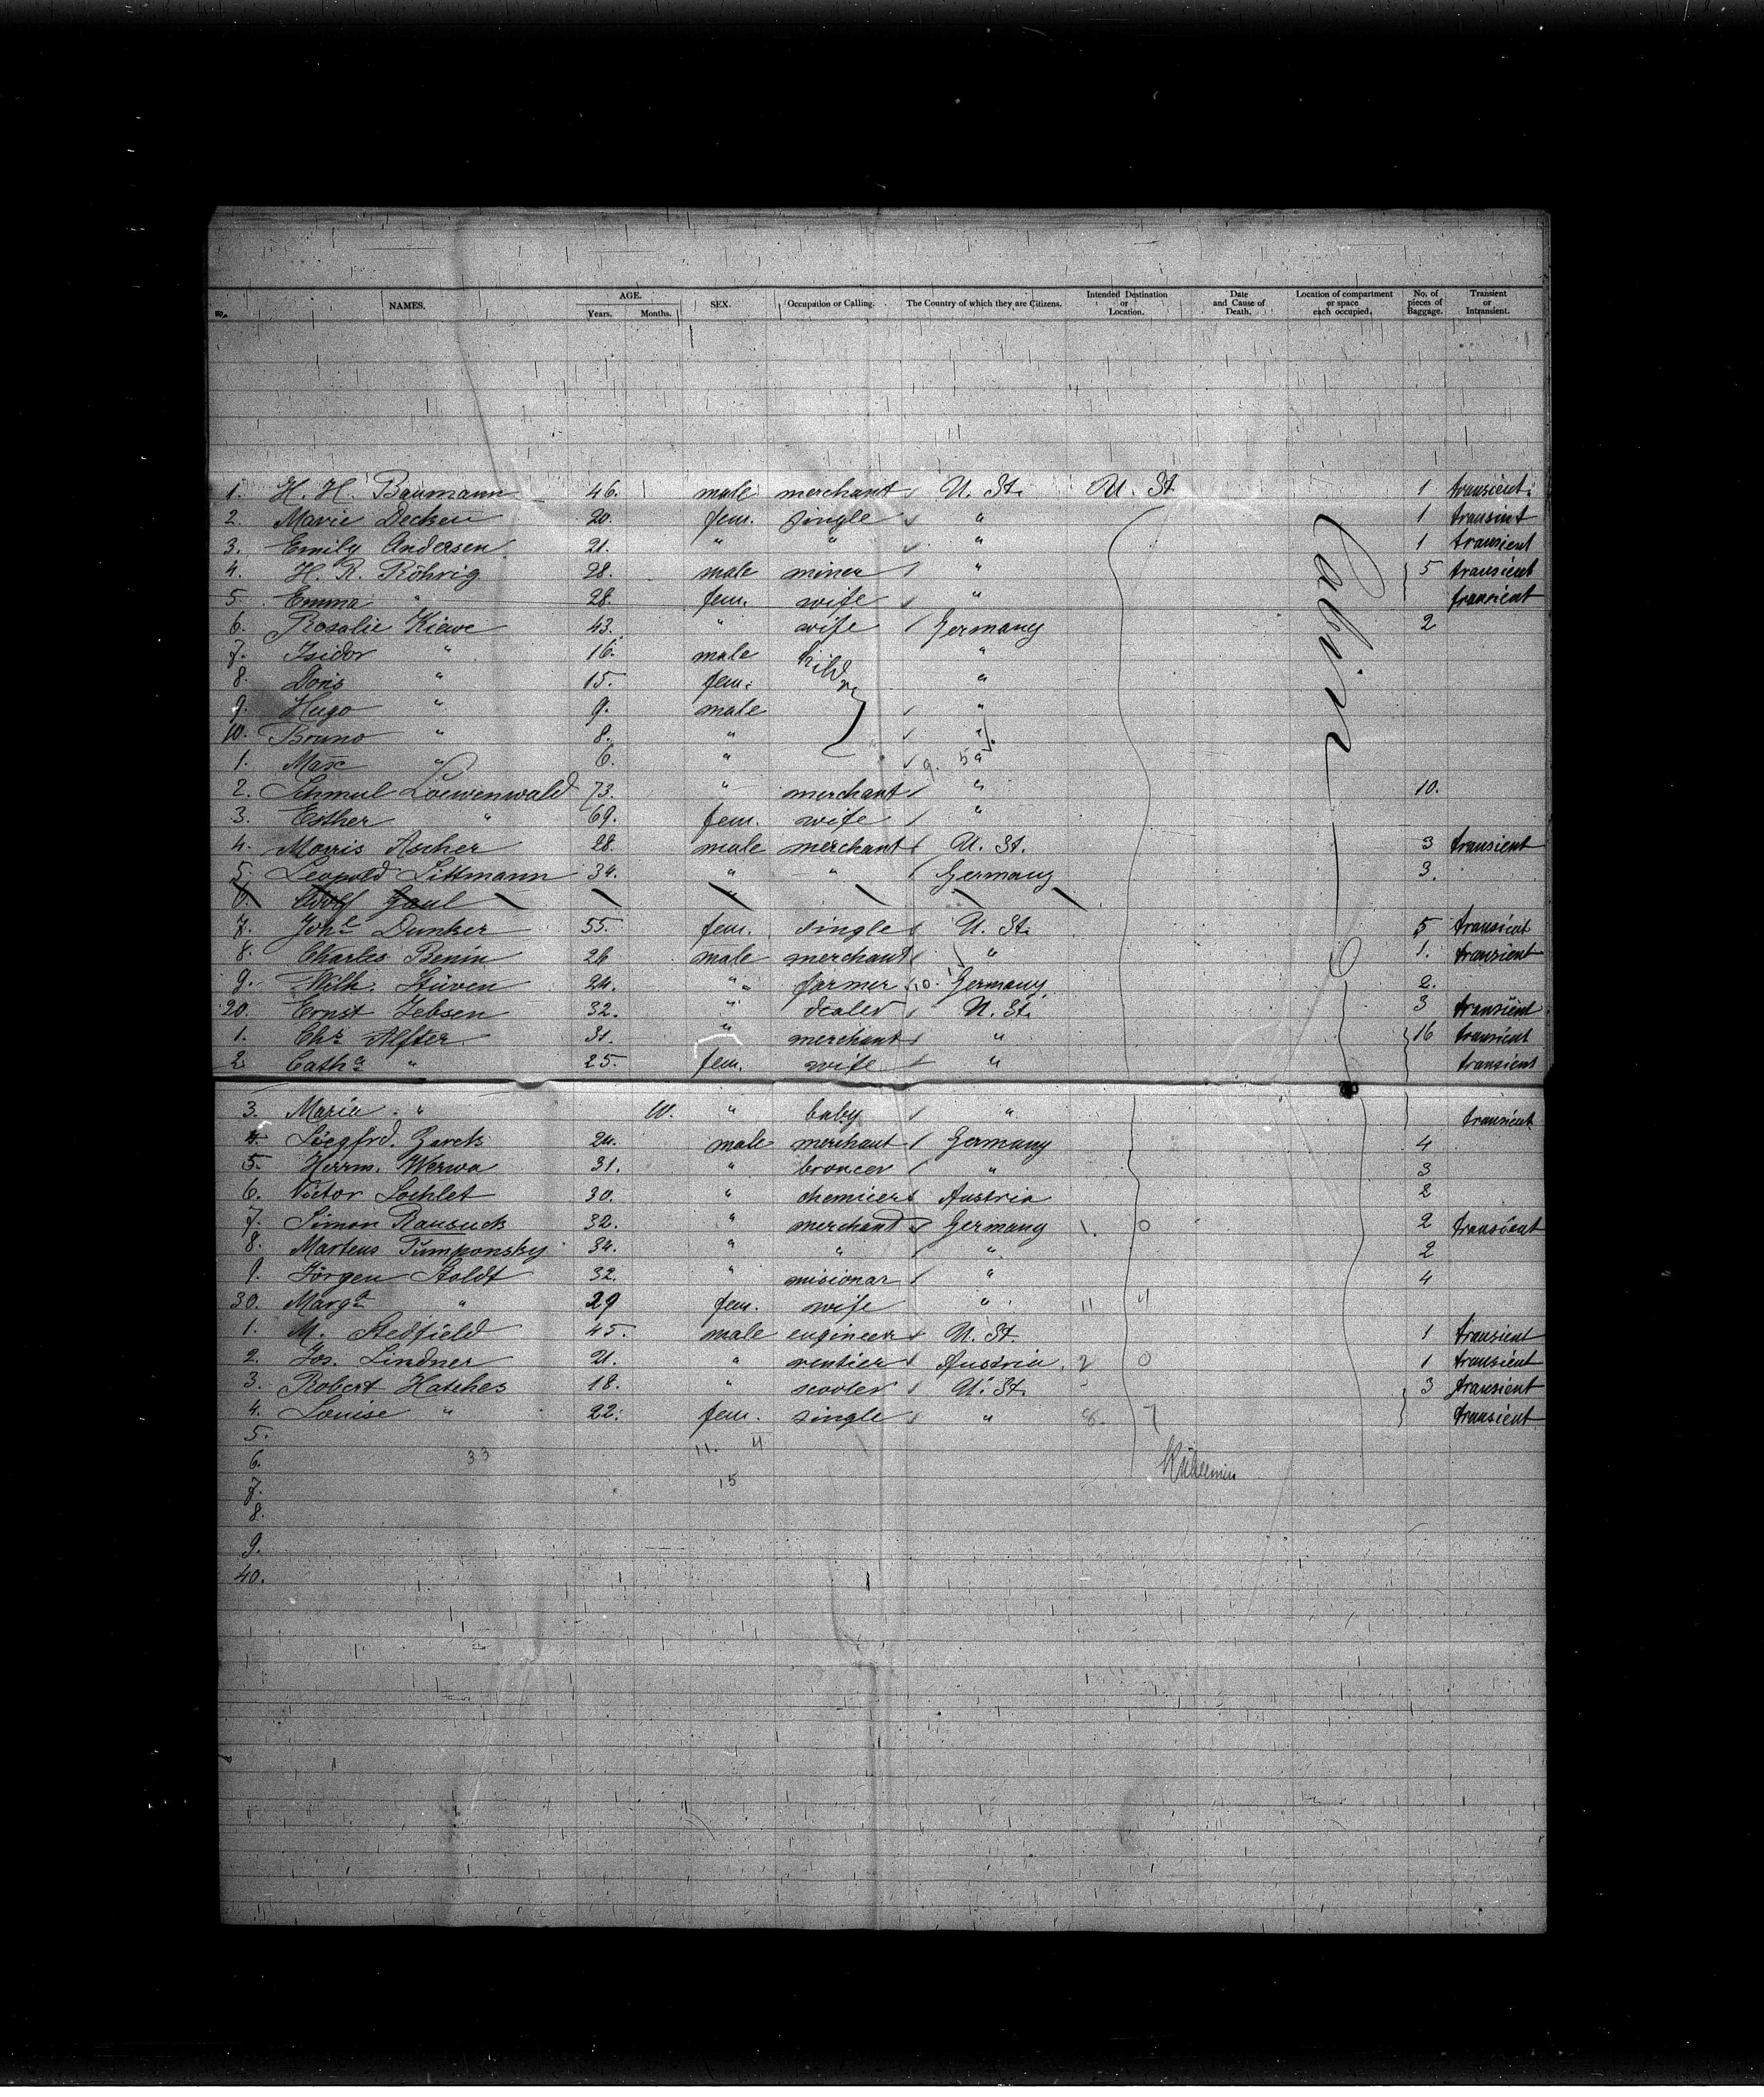 No. NAMES. AGE. Years. Months. SEX Occupation or Calling. The Country of which they are Citizens. Intended Destination or Location. Date and Cause of Death. Location of compartment or space each occupied. No. of pieces of Baggage. Transient or Intransient.
1. H. H. Baumann 46. male merchant U. St. U. St. 1 transient.
2. Marie Decken 20. fem. single " 1 transint
3. Emily Andersen 21. " " " 1 transient
4. H. R. Röhrig 28. male miner " 5 transient
5. Emma " 28. fem. wife " transient
6. Rosalie Kiewe 43. " wife Germany 2
7. Isidor " 16. male "
8. Doris " 15. fem. "
9. Hugo " 9. male "
10. Bruno " 8. " "
1. Max " 6. " 9. 5 "
2. Schmul Loewenwald 73. " merchant " 10.
3. Esther " 69. fem. wife "
4. Morris Ascher 28. male merchant U. St. 3 transient
5. Leopold Littmann 34. " " Germany 3.
6. Adolf Gaul
7. Johe Dunker 55. fem. single U. St. 5 transient
8. Charles Benin 26 male merchant " 1. transient
9. Wilh. Stüven 24. " farmer 10. Germany 2.
20. Ernst Jebsen 32. " dealer U. St. 3 transient
1. Chr. Alfter 31. " merchant " 16 transient
2. Catha " 25. fem. wife " transient
3. Maria " 10. " baby " transient
4. Siegfrd. Zarek 24. male merchant Germany 4
5. Herrm. Werwa 31. " broncer " 3
6. Victor Lochlet 30. " chemicer Austria 2
7. Simon Rausuck 32. " merchant Germany 1. 0 2 transient
8. Martens Tumponsky 34. " " " 2
9. Jörgen Holdt 32. " misionar " 4
30. Marga " 29 fem. wife " 11 4
1. M. Stedfield 45. male engineer U. St. 1 transient
2. Jos. Lindner 21. " rentier Austria 2 0 1 transient
3. Robert Hatches 18. " scooler U. St. 3 transient
4. Louise " 22. fem. single " 8. 7 transient
5. 11. 4
6. 33
7. 15
8.
9.
40.
Cabine